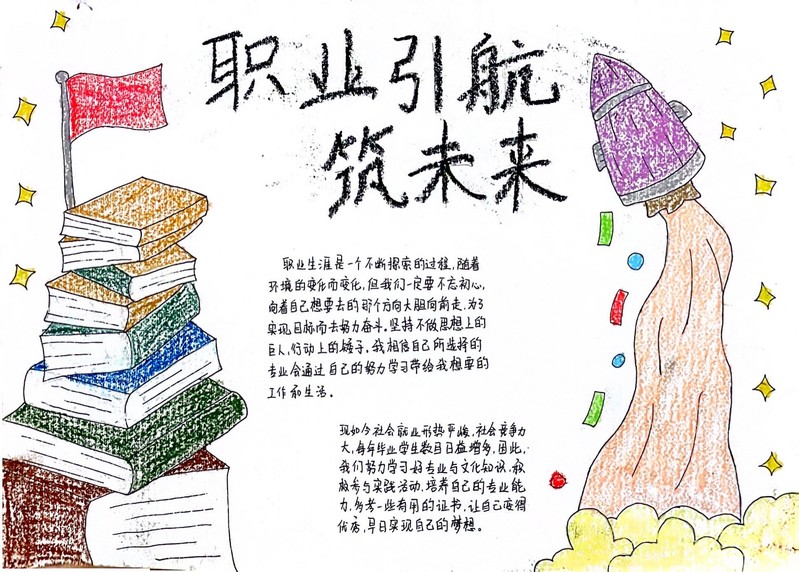 职业引航
筑未来
职业生涯是一个不断探索的过程,随着
环境的变化而变化,但我们一定要不忘初心,
向着自己想要去的那个方向大胆向前走,为了
实现目标而去努力奋斗。坚持不做思想上的
巨人,行动上的矮子。我相信自己所选择的
专业会通过自己的努力学习带给我想要的
工作和生活。
现如今社会就业形势严峻,社会竞争力
大,每年毕业学生数目日益增多,因此,
我们努力学习好专业与文化知识,积
极参与实践活动,培养自己的专业能
力,多考一些有用的证书,让自己变得
优秀,早日实现自己的梦想。